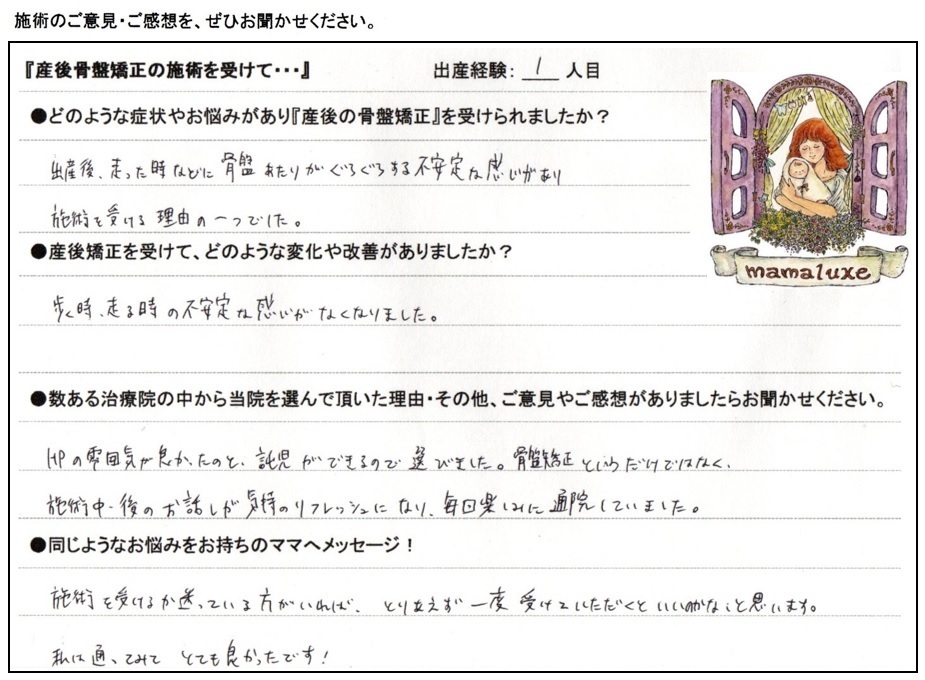 施術のご意見・ご感想を、ぜひお聞かせください。
『産後骨盤矯正の施術を受けて・・・』 出産経験: 1 人目
●どのような症状やお悩みがあり『産後の骨盤矯正』を受けられましたか？
出産後、走った時などに骨盤あたりがぐらぐらする不安定な感じがあり
施術を受ける理由の一つでした。
●産後矯正を受けて、どのような変化や改善がありましたか？
歩く時、走る時の不安定な感じがなくなりました。
mamaluxe
●数ある治療院の中から当院を選んで頂いた理由・その他、ご意見やご感想がありましたらお聞かせください。
HPの雰囲気が良かったのと、託児ができるので選びました。骨盤矯正というだけではなく、
施術中・後のお話しが気持のリフレッシュになり、毎回楽しみに通院していました。
●同じようなお悩みをお持ちのママへメッセージ！
施術を受けるか迷っている方がいれば、とりあえず一度受けていただくといいのかなと思います。
私は通ってみてとても良かったです！